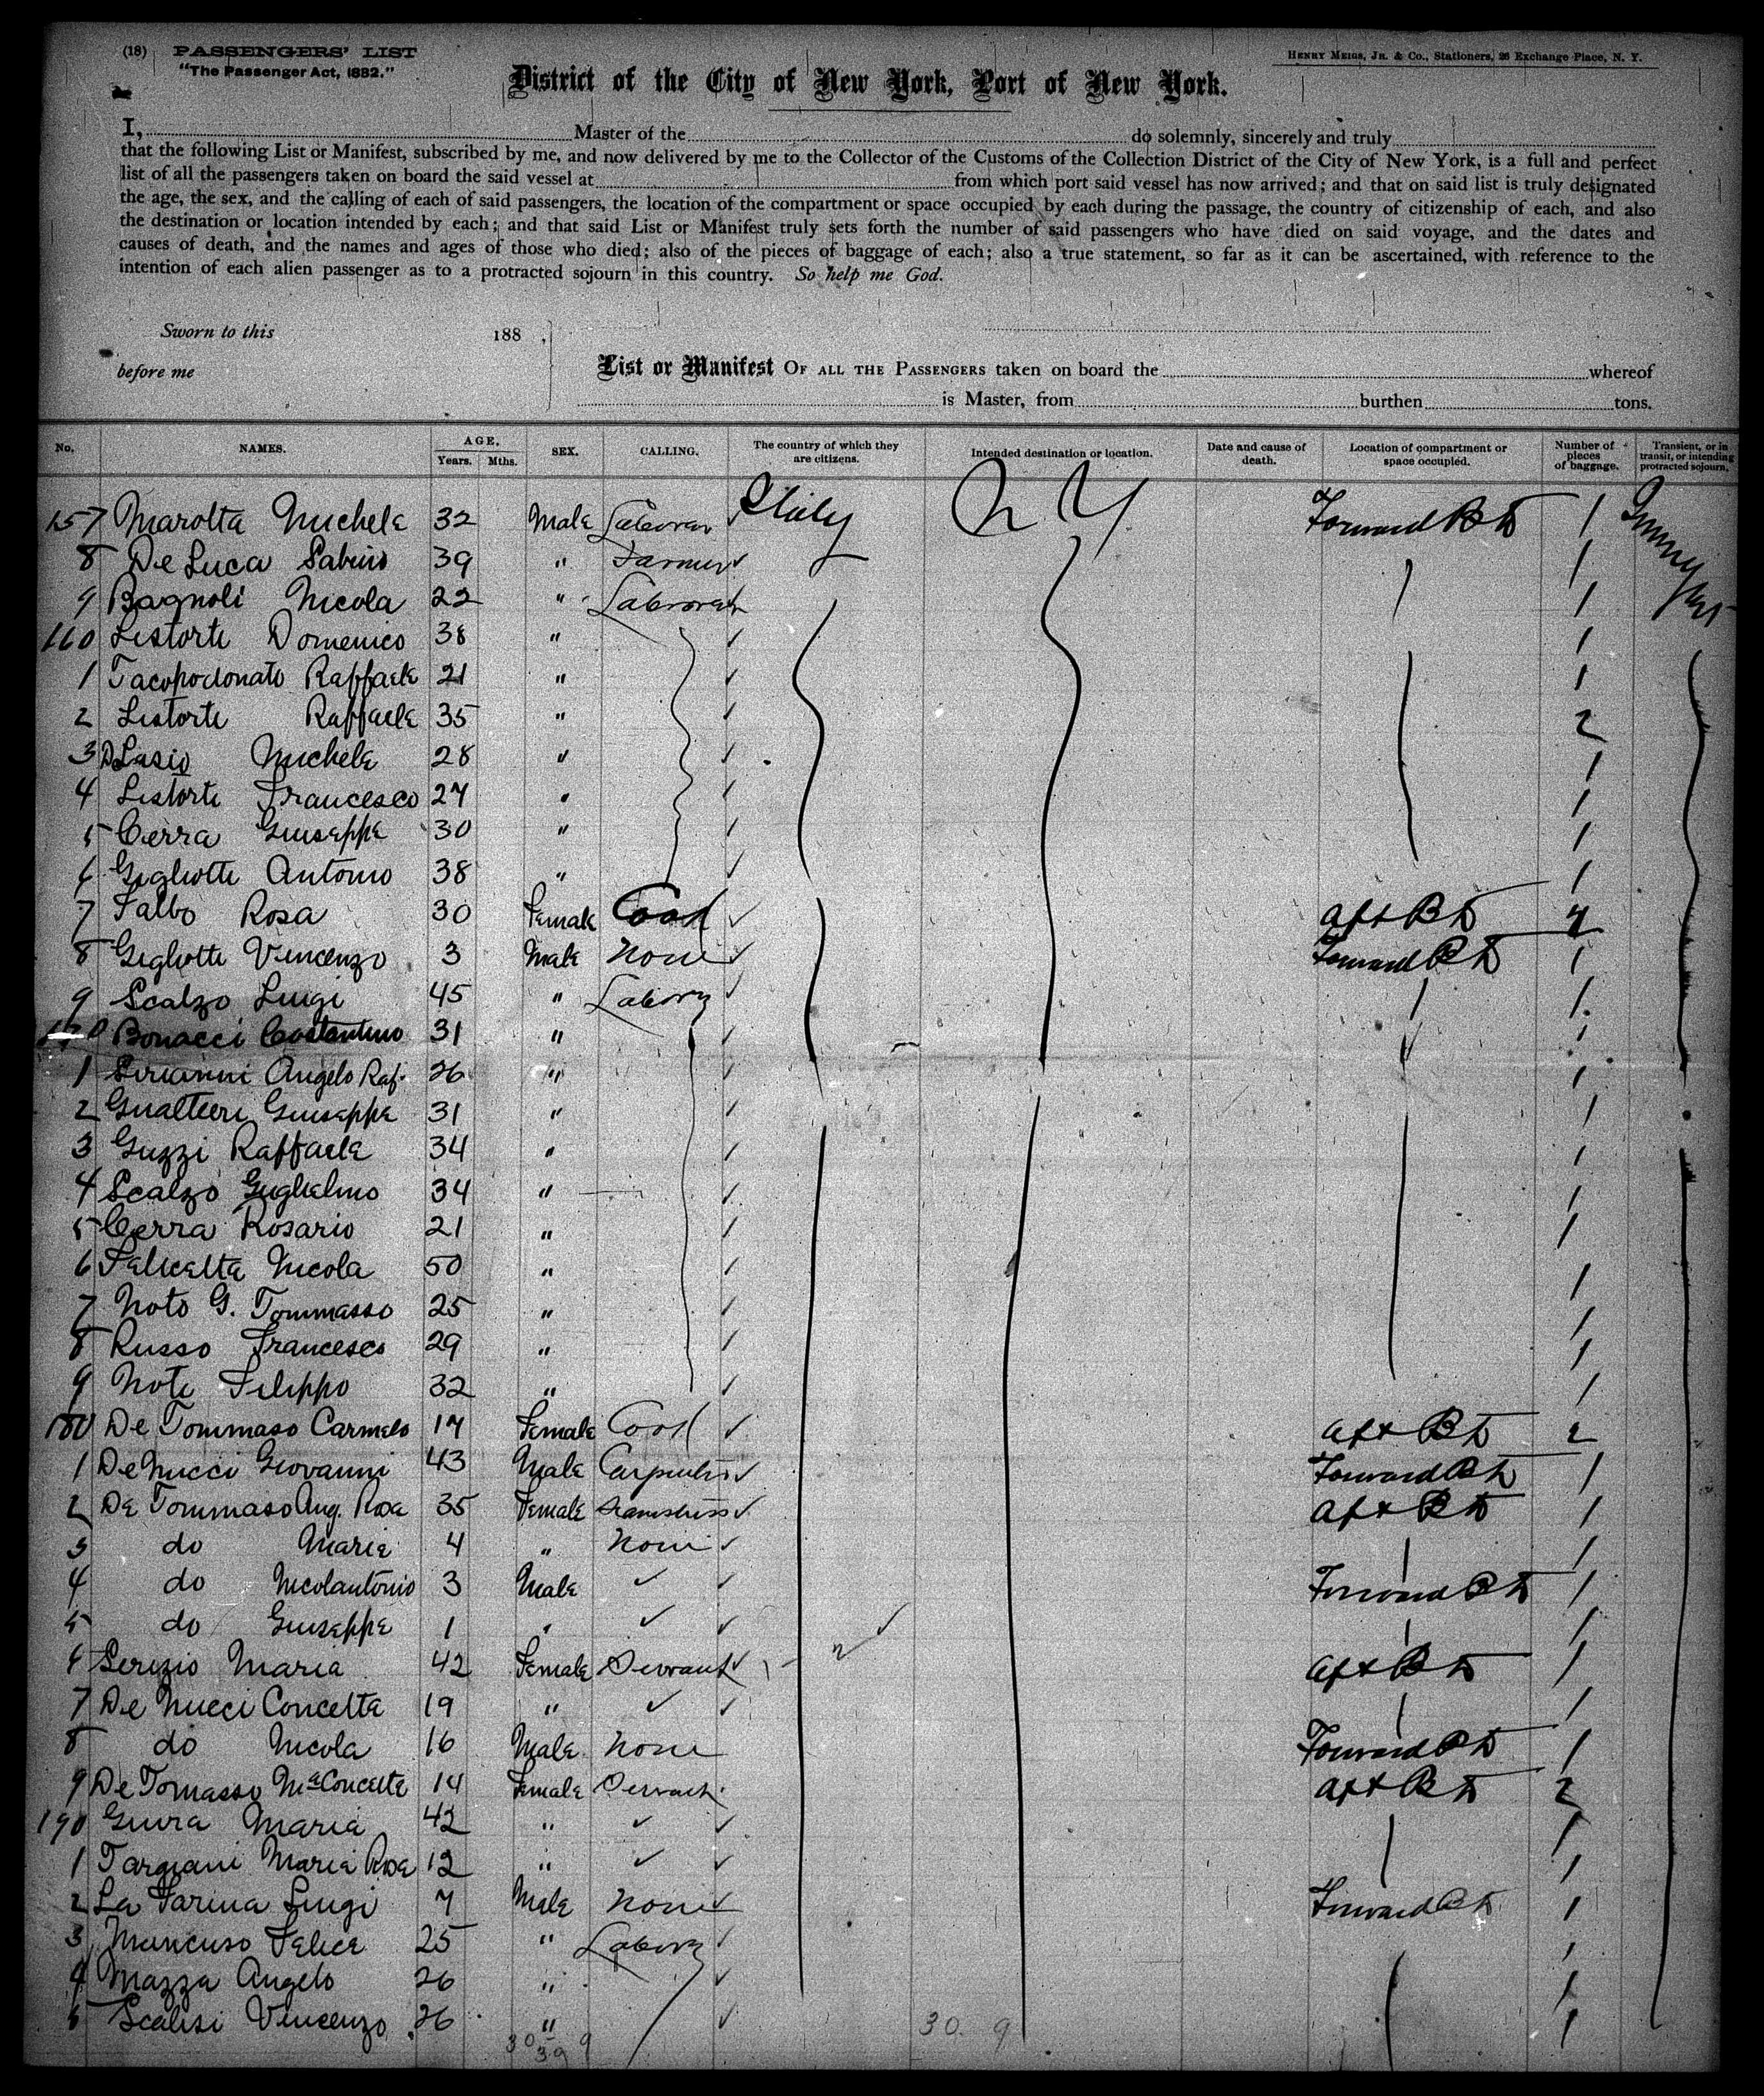 (18) PASSENGERS' LIST
"The Passenger Act, 1882."
HENRY MEIGS, JR. & CO., Stationers, 26 Exchange Place, N. Y.
District of the City of New York, Port of New York.
I, Master of the do solemnly, sincerely and truly
that the following List or Manifest, subscribed by me, and now delivered by me to the Collector of the Customs of the Collection District of the City of New York, is a full and perfect
list of all the passengers taken on board the said vessel at from which port said vessel has now arrived; and that on said list is truly designated
the age, the sex, and the calling of each of said passengers, the location of the compartment or space occupied by each during the passage, the country of citizenship of each, and also
the destination or location intended by each; and that said List or Manifest truly sets forth the number of said passengers who have died on said voyage, and the dates and
causes of death, and the names and ages of those who died; also of the pieces of baggage of each; also a true statement, so far as it can be ascertained, with reference to the
intention of each alien passenger as to a protracted sojourn in this country. So help me God.
Sworn to this 188 ,
before me
List or Manifest OF ALL THE PASSENGERS taken on board the whereof
is Master, from burthen tons.
No. NAMES. AGE. Years. Mths. SEX. CALLING. The country of which they are citizens. Intended destination or location. Date and cause of death. Location of compartment or space occupied. Number of pieces of baggage. Transient, or in transit, or intending protracted sojourn.
157 Marotta Michele 32 Male Laborer Italy N Y Forward B D 1
8 De Luca Sabino 39 " Farmer 1
9 Bagnoli Nicola 22 " Laborer 1
160 Listorte Domenico 38 " 1
1 Iacopodonato Raffaele 21 " 1
2 Listorte Raffaele 35 " 2
3 D Lasio Michele 28 " 1
4 Listorte Francesco 27 " 1
5 Cerra Giuseppe 30 " 1
6 Gigliotti Antonio 38 " 1
7 Falbo Rosa 30 Female Cook Aft B D 4
8 Gigliotti Vincenzo 3 Male None Forward B D 1
9 Scalzo Luigi 45 " Labory 1
170 Bonacci Costantino 31 " 1
1 Sirianni Angelo Raf. 26 " 1
2 Gualtieri Giuseppe 31 " 1
3 Guzzi Raffaele 34 " 1
4 Scalzo Guglielmo 34 " 1
5 Cerra Rosario 21 " 1
6 Felicetta Nicola 50 " 1
7 Noto G. Tommasso 25 " 1
8 Russo Francesco 29 " 1
9 Note Filippo 32 " 1
180 De Tommaso Carmelo 17 Female Cook Aft B D 2
1 De Nucci Giovanni 43 Male Carpenter Forward B D 1
2 De Tommaso Ang. Rosa 35 Female Seamstress Aft B D 1
3 do Maria 4 " None 1
4 do Nicolantonio 3 Male Forward B D 1
5 do Giuseppe 1 " 1
6 Serizio Maria 42 Female Servant Aft B D 1
7 De Nucci Concetta 19 " 1
8 do Nicola 16 Male None Forward B D 1
9 De Tomasso Ma Concetta 14 Female Servant Aft B D 2
190 Giura Maria 42 " 1
1 Targiani Maria Rosa 12 " 1
2 La Farina Luigi 7 Male None Forward B D 1
3 Mancuso Felice 25 " Labory 1
4 Mazza Angelo 26 " 1
5 Scalisi Vincenzo 26 " 1
30 9
30. 9
39